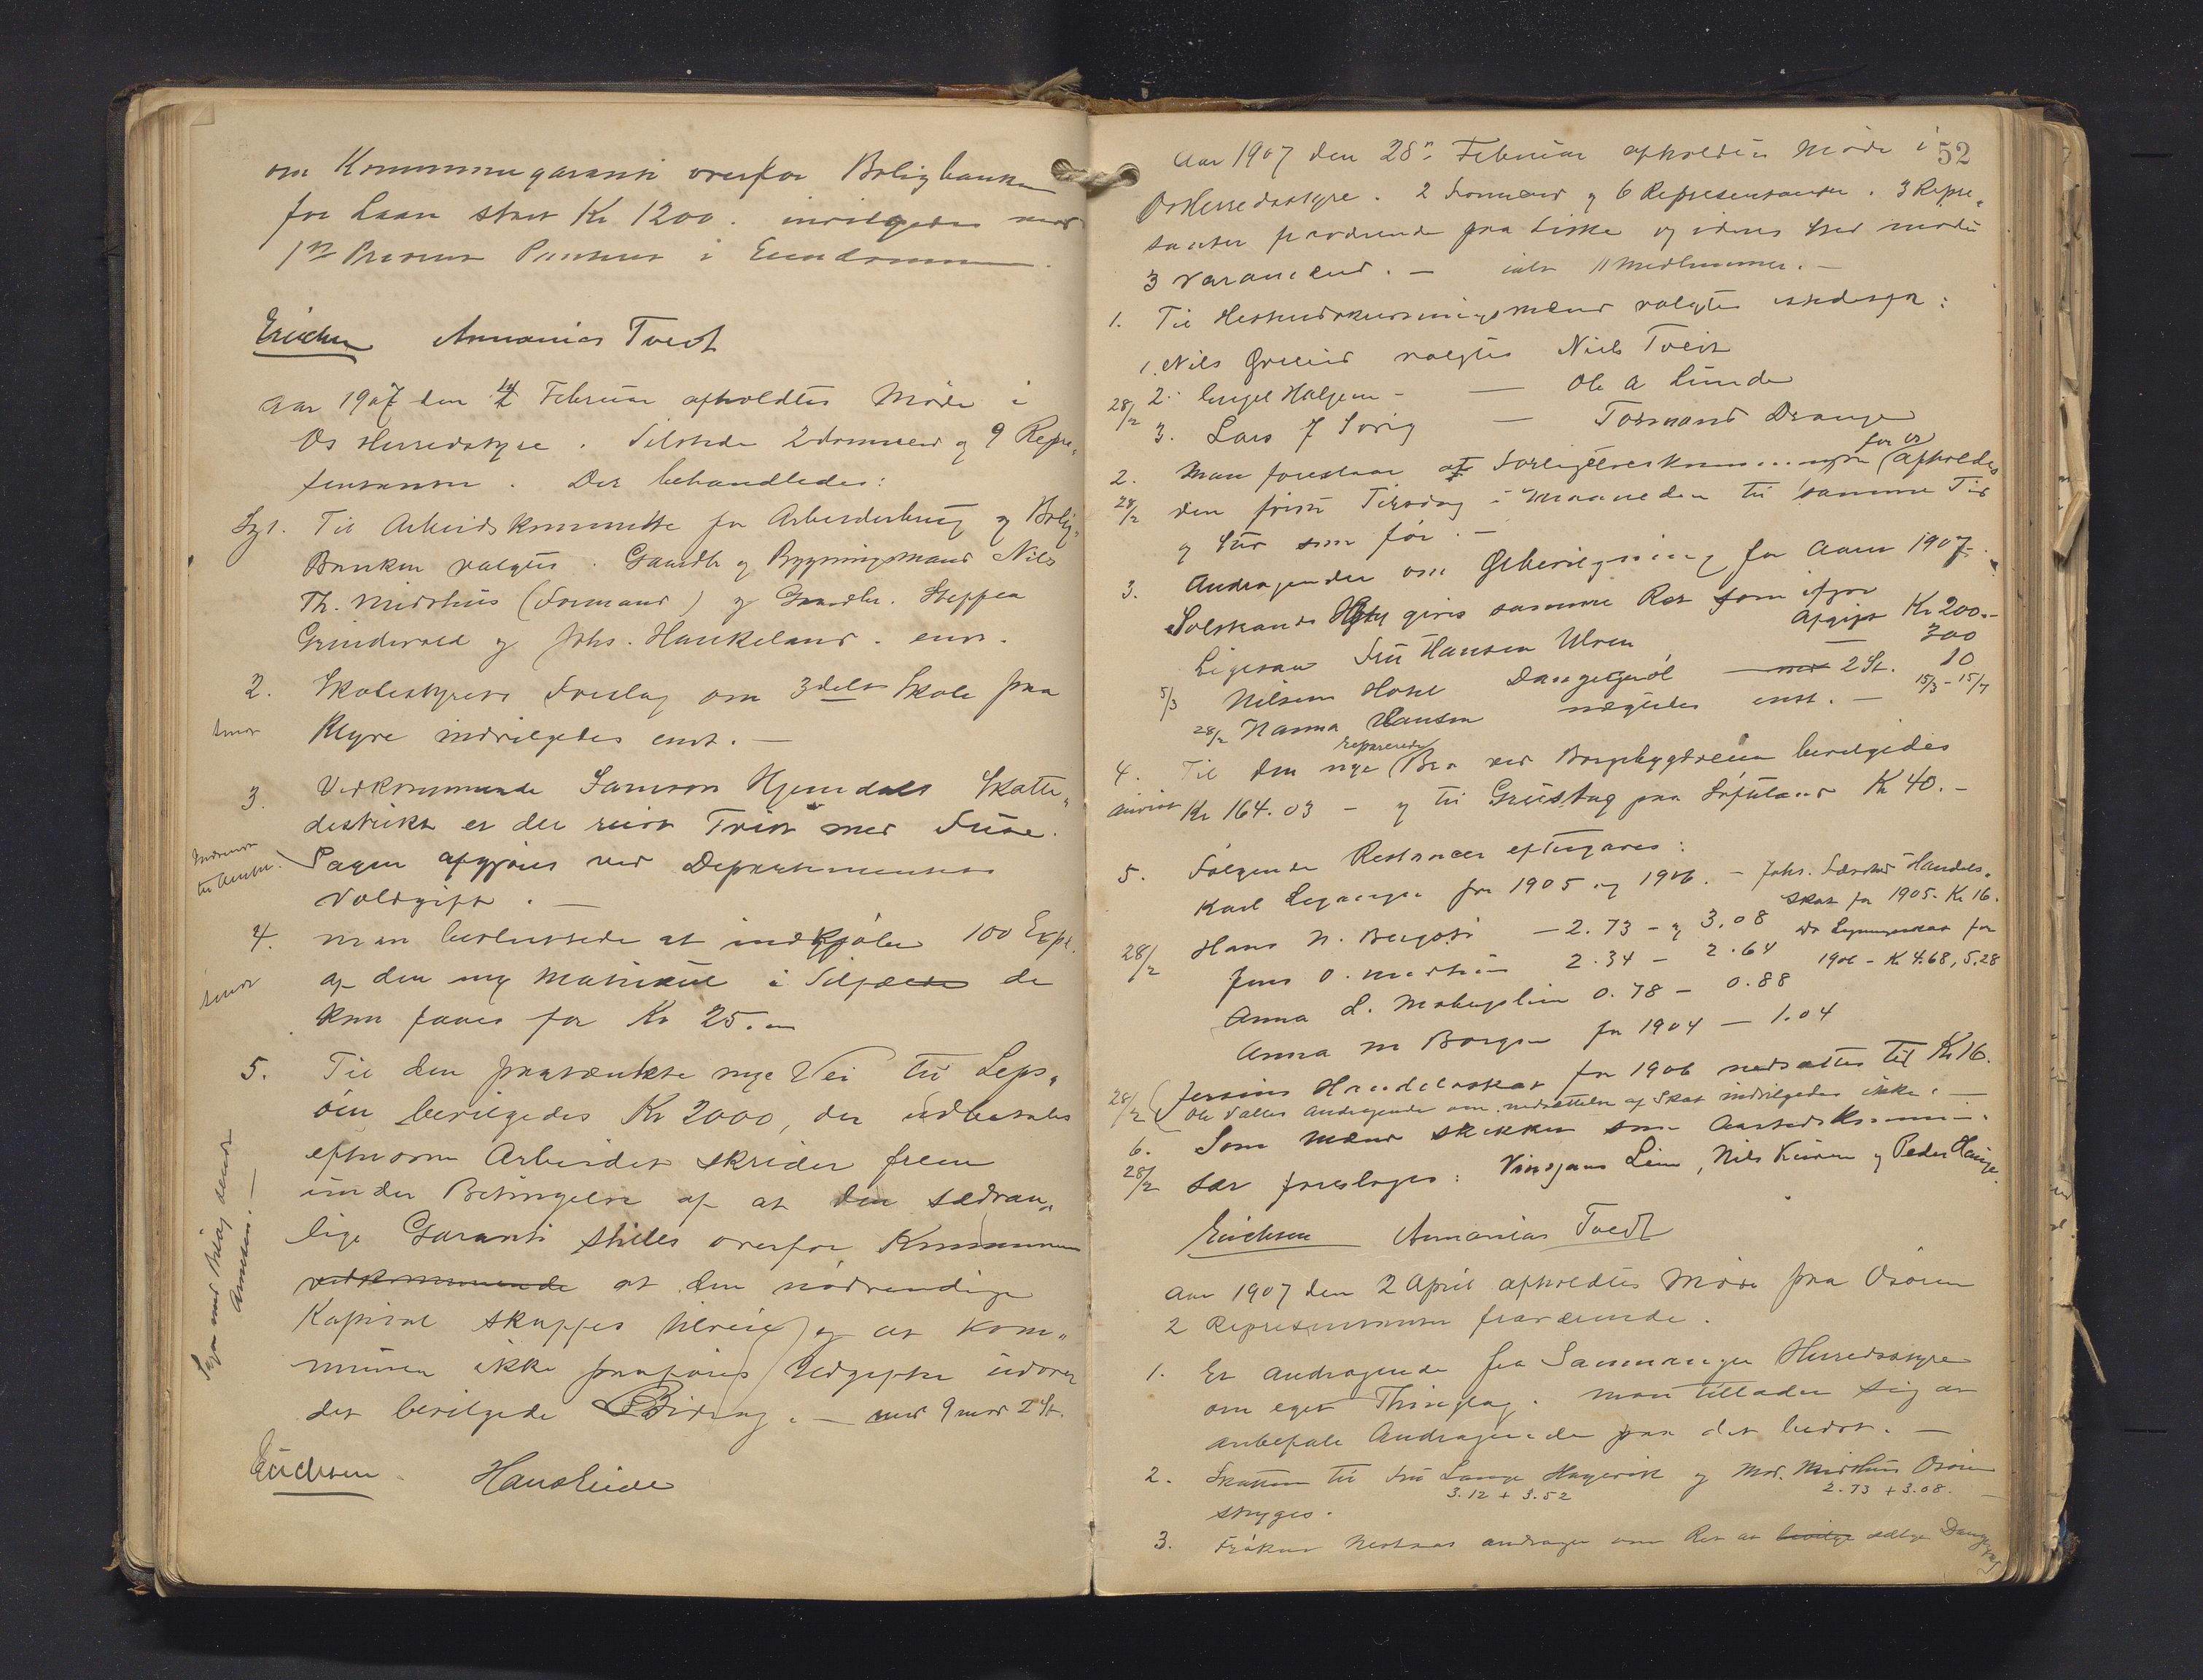 om Kommunegaranti overfor Boligbanken
for Laan stort Kr 1200. indvilgedes mod
1ste Prioritets Panteret i Eiendommen.
Erichsen Annanias Tvedt
Aar 1907 den 14/2 Februar afholdtes Møde i
Os Herredstyre. Tilstede 2 Formænd og 9 Repre„
sentanter. Der behandledes:
1. Til Arbeidskommitte for Arbeiderbrug og Bolig„
Banken valgtes. Gaardbr og Bygningsmand Nils
Th. Midthus (Formand) og Gaardbr. Steffen
Grindevold og Johs. Haukeland. enst.
2. Skolestyrets Forslag om 3delt Skole paa
Klyve indvilgedes enst. —
sendt
3. Vedkommende Samson Hjemdals Skatte„
distrikt er der reist Tvist med Fuse.
Indsendt
til Amtet.
Sagen afgjøres ved Departementets
Voldgift. —
4. Man besluttede at indkjøbe 100 Expl.
sendt
af den nye Matrikul i Tilfælde de
kan faaes for Kr 25.—
5. Til den paatænkte nye Vei til Leps„
øen bevilgedes Kr 2000, der udbetales
eftersom Arbeidet skrider frem
under Betingelse af at den sædvan„
lige Garanti stilles overfor Kommunen
vedkommende at den nødvendige
Kapital skaffes tilveie og at Kom„
munen ikke paaføres Udgifter udover
det bevilgede Bidrag. — med 9 mod 2 St.
Sagen med Bilag sendt
Amtet. —
Erichsen. Hans Lunde
52
Aar 1907 den 28de Februar afholdtes Møde i
Os Herredstyre. 2 Formænd og 6 Representanter. 3 Repre„
santer fraværende paa Liste og i deres Sted mødte
3 Varamænd. — ialt 11 Medlemmer. —
1. Til Hesteudskrivningsmænd valgtes istedenfor:
1. Nils valgtes Nils Tveit
28/2
2. Engel Haljem - — Ole A Lunde
3. Lars J Sørig — Tormand Drange
2. Man foreslaar at Forligelseskommissionen for Os afholdes
28/2
den første Tirsdag i Maaneden til samme Tid
og Sted som før. —
3. Andragender om Ølbevilgning for Aaret 1907.
Solstrands Hotel gives samme Ret som ifjor Afgift Kr 200.-
Ligesaa Fru Hansen Ulven — 300
5/3
Nilsens Hotel Dangelgerøl — mod 2 St. 10
28/2 Hanna Hansen nægtedes enst. — 15/3 - 15/7
4. Til den nye reparerede Bro ved Borgebygdveien bevilgedes
anvist Kr 164.03 - og til Grustag paa Kr 40.-
5. Følgende Restancer eftergaves:
Karl for 1905 og 1906. - Johs. Handels„
skat for 1905- Kr 16.
28/2
Hans N. - 2.73 - og 3.08 do Ligningsskat for
Jens O. Midthus 2.34 - 2.64 1906 - Kr 4.68, 5.28
Anna L. 0.78 - 0.88
Anna M Borgen for 1904 - 1.04
28/2
Jersins Handelsskat for 1906 nedsættes til Kr 16.
Ole Valles Andragende om nedsættelse af Skat indvilgedes ikke. —
6. Som Mænd skikkede som Aastedskommis-
28/2
sær foreslages: Vinsjans Lien, Nils Kuven og Peder Hauge.
Erichsen Annanias Tvedt
Aar 1907 den 2 April afholdtes Møde paa Osøren
2 Representanter fraværende.
1. Et Andragende fra Samnanger Herredstyre
om eget Thinglag. Man tillader sig at
anbefale Andragendet paa det bedste. —
2. Skatten til Fru Lange Hagevik og Mad. Midthus Osøren
3.12 + 3.52 2.73 + 3.08.
stryges.
3. Frøken andrager om Ret at bevilge sælge